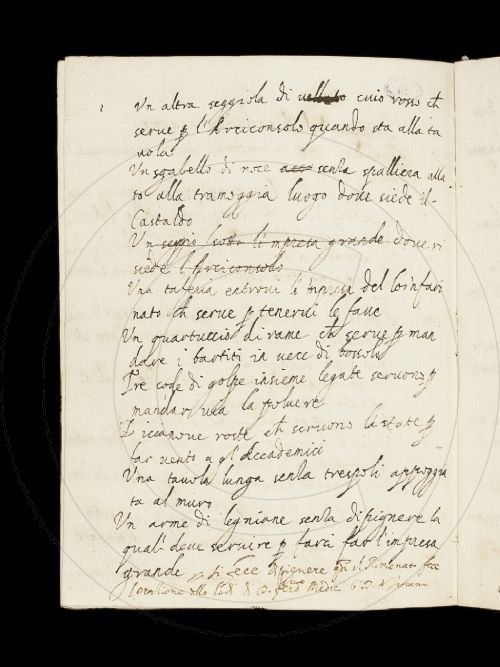 1 Un altra seggiola di velluto cuio rosso ch
serve p l'Arciconsolo quando sta alla ta
vola
Un sgabello di noce senza spalliera alla
to alla tramoggia luogo dove siede il
Castaldo
Un seggio sotto l'impresa grande dove ri
siede l'Arciconsolo
Una entrovi l'impresa del Coinfari
nato ch serve p tenervi le fave
Un quartuccio di rame ch serve p man
dare i partiti in vece di bossolo
Tre code di golpe insieme legate servono p
mandar via la polvere
Diciannove roste ch servono la state p
far vento a gl'Accademici
Una tavola lunga senza trespoli appoggia
ta al muro
Un arme di legniame senza dipignere la
qual deve servire p farci far l'impresa
grande si fece dipignere il fece
l'oratione delle lodi di